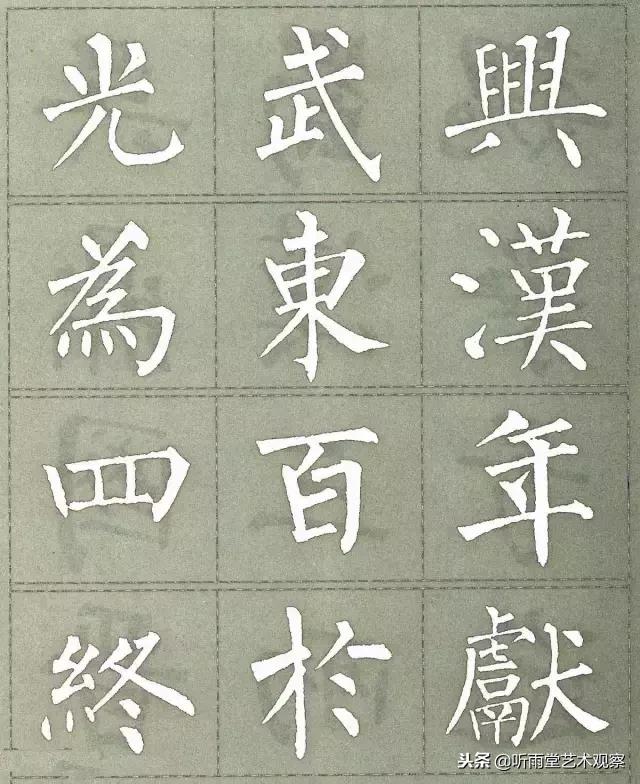 光武興
為東漢
四百年
終於獻
头条@听雨堂艺术观察